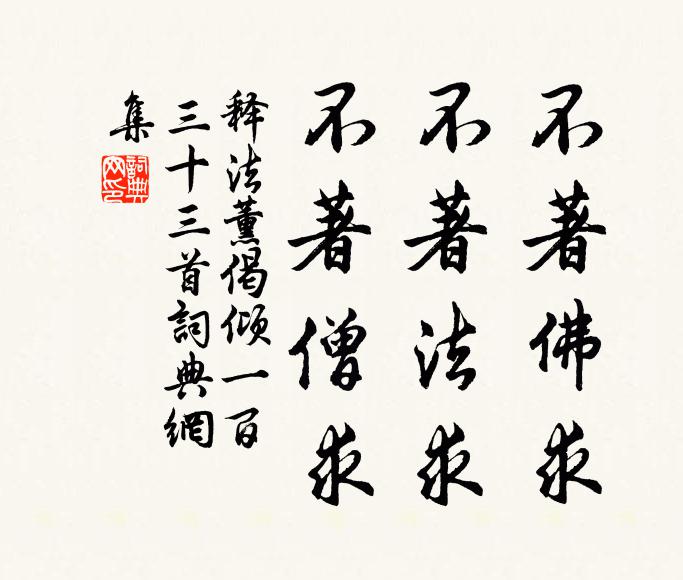 不著佛求
不著法求
不著僧求
释法薰偈倾一百
三十三首詞典網
集
詞典
网印